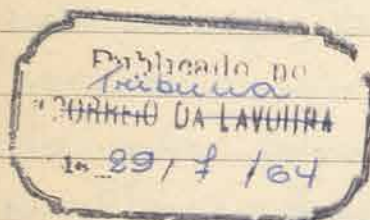 Publicado no
Tribuna
CORREIO DA LAVOURA
de 29 / 7 / 64